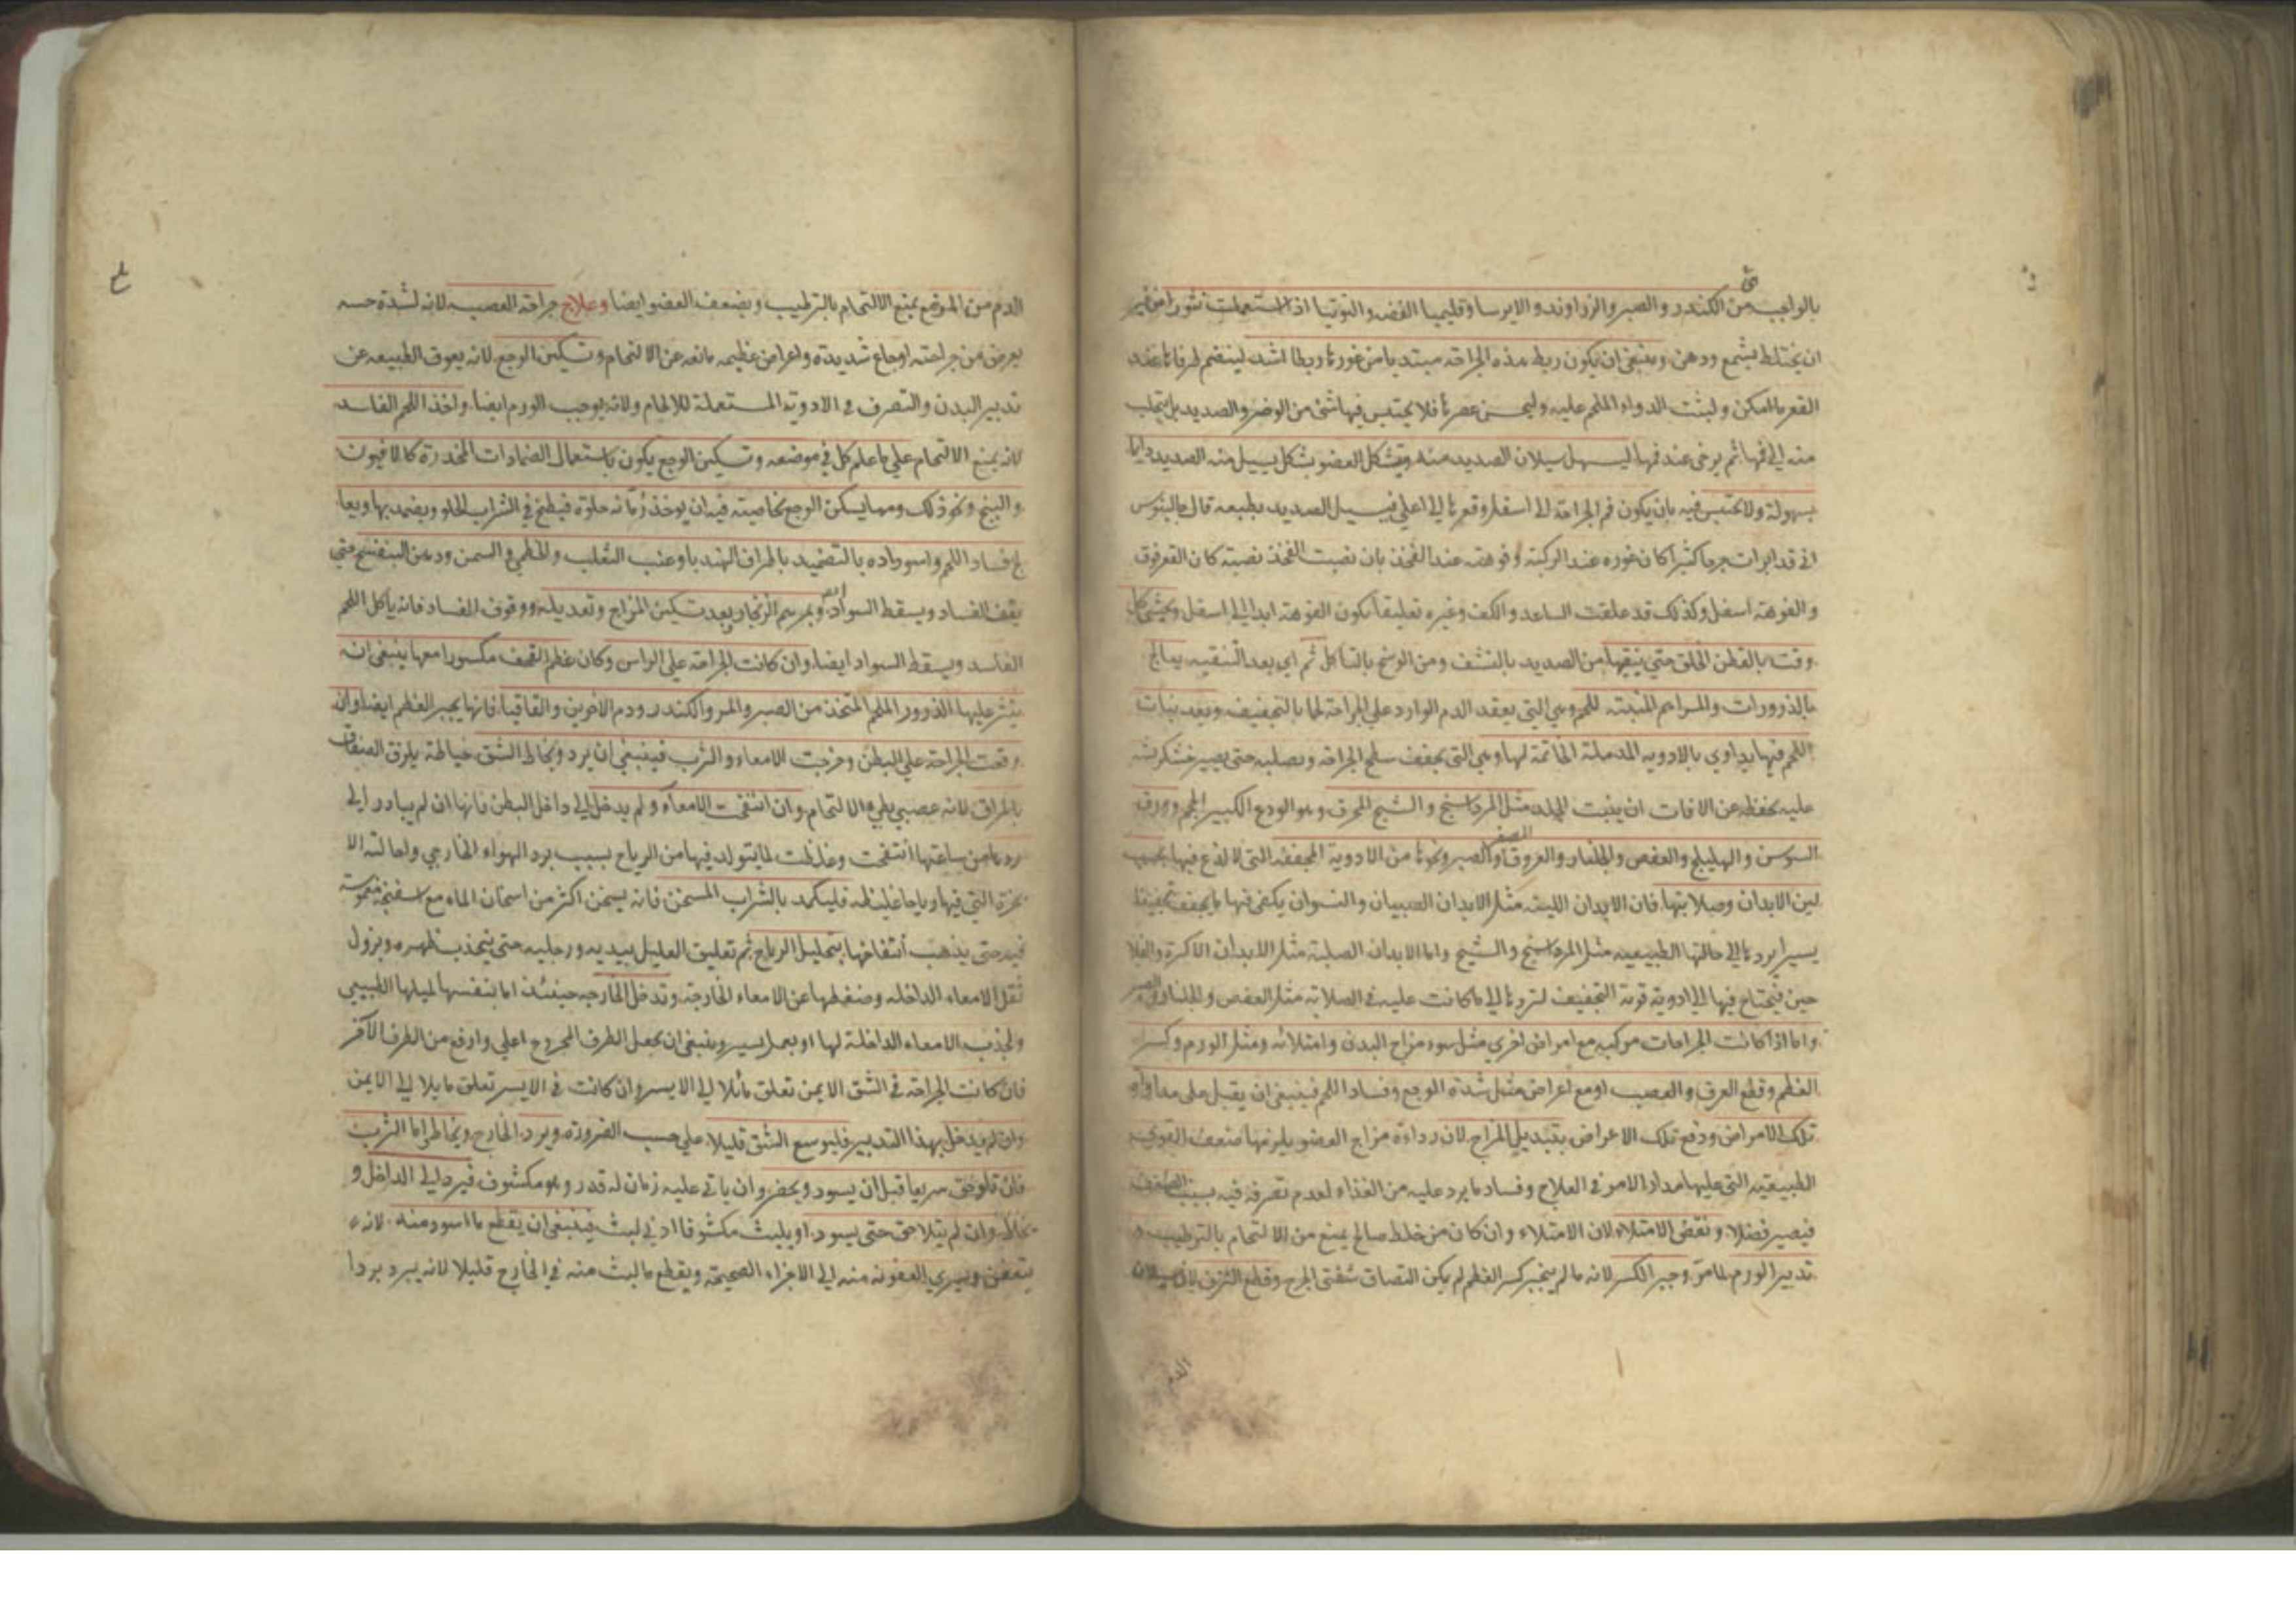 بالواجب من الكندر والصبر والزراوند والايرسا وقليميا الفضه والتوتيا اذا استعملت نثورا من غير
ان يختلط بشمع ودهن وينبغى ان يكون ربط هذه الجراحه مبتديا من غورها ربطا اشد لينضم طرفاها عند
القعر ما امكن ولبثت الدواء الملحم عليه وليحسن عصرها فلا يحتبس فيها شئ من الوضر والصديد بل يتحلب
منه الى فمها ثم يرخى عند فمها ليسهل سيلان الصديد منه ويشكل العضو بشكل يسيل منه الصديد دايما
بسهولة ولا يحتبس فيه بان يكون فم الجراحة الى اسفل وقعرها الى اعلى فيسيل الصديد بطبعه قال جالينوس
انى قد ابرات جرحا كثيرا كان غوره عند الركبة وفوهته عند الفخذ بان نصبت الفخذ نصبة كان القعر فوق
والفوهة اسفل وكذلك قد علقت الساعد والكف وغيره تعليقا يكون الفوهة ابدا الى اسفل ويحشى كل
وقت بالقطن الخلق حتى ينقيها من الصديد بالنشف ومن الوسخ بالتاكل ثم اى بعد التنقيه يعالج
بالذرورات والمراهم المنبتة للحم وهى التى يعقد الدم الوارد على الجراحة لحما بالتجفيف وبعد نبات
اللحم فيها يداوى بالادويه المدملة الخاتمة لها وهى التى يجفف سطح الجراحه ويصلبه حتى يصير خشكريشه
عليه يحفظه عن الافات ان ينبت الجلد مثل المرداسنج والشيح المحرق وهو الودع الكبير الحجم وورق
السوسن والهليلج والعفص والجلنار والعروق الصفر والصبر ونحوها من الادوية المجففه التى لا لذع فيها بحسب
لين الابدان وصلابتها فان الابدان اللينه مثل الابدان الصبيان والنسوان يكفى فيها ما يجفف تجفيفا
يسيرا يردها الى حالتها الطبيعيه مثل المرداسنج والشيح واما الابدان الصلبة مثل الابدان الاكرة والفلا
حين فيحتاج فيها الى ادوية قوية التجفيف لتردها الى ما كانت عليه فى الصلابه مثل العفص والجلنار
واما اذا كانت الجراحات مركبه مع امراض اخرى مثل سوء مزاج البدن وامتلائه ومثل الورم وكسر
العظم وقطع العرق والعصب او مع اعراض مثل شدة الوجع وفساد اللحم فينبغى ان يقبل على مداواة
تلك الامراض ودفع تلك الاعراض بتبديل المزاج لان رداءة مزاج العضو يلزمها ضعف القوى
الطبيعيه التى عليها مدار الامر فى العلاج وفساد ما يرد عليه من الغذاء لعدم تصرفه فيه بسبب الضعف
فيصير فضلا ونقض الامتلاء لان الامتلاء وان كان من خلط صالح يمنع من الالتحام بالترطيب و
تدبير الورم لما مر وجبر الكسر لانه ما لم ينجبر كسر العظم لم يكن التصاق شفتى الجرح وقطع النزف لان سيلان
الدم
الدم من الموضع يمنع الالتحام بالترطيب ويضعف العضو ايضا وعلاج جراحه العصب لانه لشدة حسه
يعرض من جراحته اوجاع شديدة واعراض عظيمه مانعه عن الالتحام وتسكين الوجع لانه يعوق الطبيعه عن
تدبير البدن والتصرف فى الادوية المستعملة للالحام ولانه يوجب الورم ايضا واخذ اللحم الفاسد
لانه يمنع الالتحام على ما علم كل فى موضعه وتسكين الوجع يكون باستعمال الضمادات المخدرة كالافيون
والبنج ونحو ذلك ومما يسكن الوجع بخاصيته فيه ان يوخذ رمانه حلوة فيطبخ فى الشراب الحلو ويضمد بها ويعا
لج فساد اللحم واسوداده بالتضميد باطراف الهندبا وعنب الثعلب والخطمى والسمن ودهن البنفسج حتى
يقف الفساد ويسقط السواد وبمرهم الزنجار بعد تسكين المزاج وتعديله ووقوف الفساد فانه ياكل اللحم
الفاسد ويسقط السواد ايضا وان كانت الجراحه على الراس وكان عظم القحف مكسورا معها ينبغى ان
ينثر عليها الذرور الملحم المتخذ من الصبر والمر والكندر ودم الاخوين والقاقيا فانها يجبر العظم ايضا وان
وقعت الجراحة على البطن وخرجت الامعاء والثرب فينبغى ان يرد ويخاط الشق خياطة يلزق الصفاق
بالمراق لانه عصبى بطى الالتحام وان انتفخت الامعاء ولم يدخل الى داخل البطن فانها ان لم يبادر الى
ردها من ساعتها انتفخت وغلظت لما يتولد فيها من الرياح بسبب برد الهواء الخارجى واحالته الا
بخرة التى فيها رياحا غليظه فليكمد بالشراب المسخن فانه يسخن اكثر من اسخان الماء مع اسفنجة مغموسة
فيه حتى يذهب انتفاخها بتحليل الرياح ثم تعليق العليل بيديه ورجليه حتى ينحدب ظهره ويزول
ثقل الامعاء الداخله وضغطها عن الامعاء الخارجة وتدخل الخارجه حينئذ اما بنفسها لميلها الطبيعى
ولجذب الامعاء الداخلة لها او بعمل يسير وينبغى ان يجعل الطرف المجروح اعلى وارفع من الطرف الآخر
فان كانت الجراحه فى الشق الايمن تعلق مائلا الى الايسر وان كانت فى الايسر تعلق مايلا الى الايمن
وان لم يدخل بهذا التدبير فليوسع الشق قليلا على حسب الضرورة ويرد الخارج ويخاط واما الثرب
فان تلوحق سريعا قبل ان يسود ويخضر وان ياتى عليه زمان له قدر وهو مكشوف فيرد الى الداخل و
يخاط وان لم يتلاحق حتى يسود او يلبث مكشوفا ادنى لبث فينبغى ان يقطع ما اسود منه لانه
يتعفن ويسرى العفونه منه الى الاجزاء الصحيحة ويقطع ما لبث منه فى الخارج قليلا لانه يبرد بردا